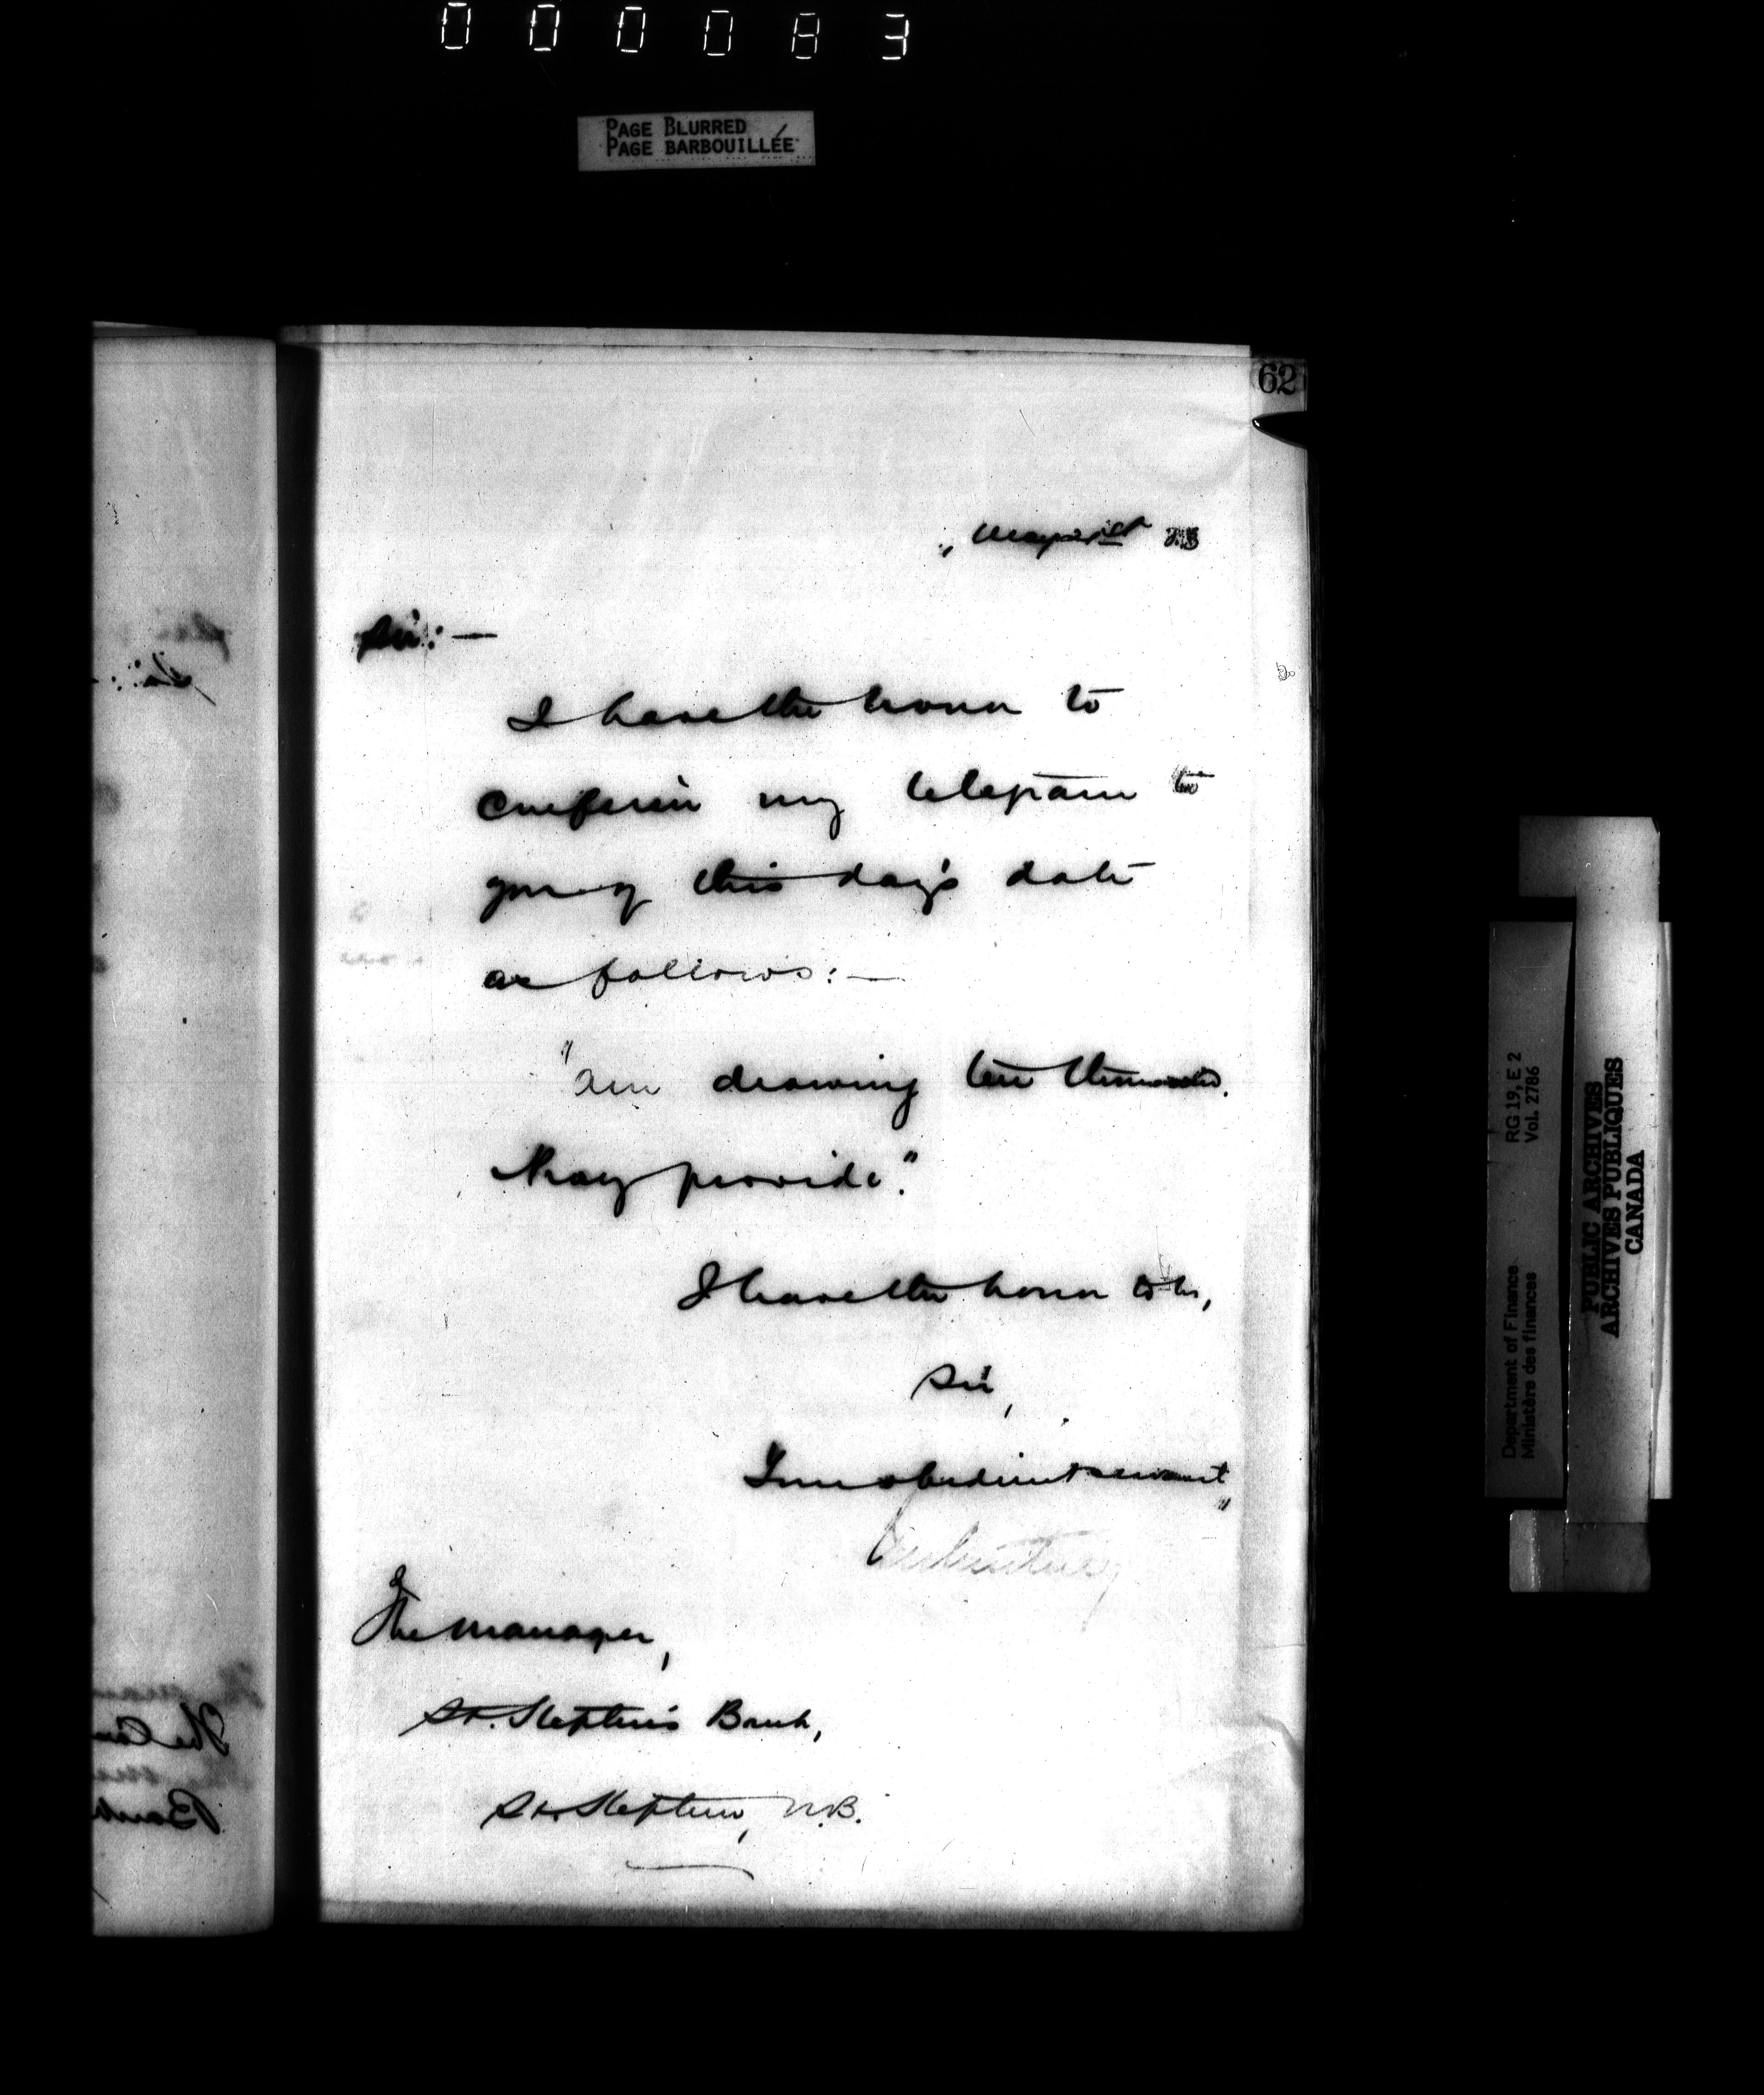 000083
PAGE BLURRED
PAGE BARBOUILLÉE
62
May 21st
Sir:—
I have the honor to
confirm my telegram to
you of this day's date
as follows:—
"Am drawing ten thousand.
Pray provide."
I have the honor to be,
Sir,
Your obedient servant,
The Manager,
St. Stephen's Bank,
St. Stephen, N.B.
RG 19, E 2
Vol. 2786
Department of Finance
Ministère des finances
PUBLIC ARCHIVES
ARCHIVES PUBLIQUES
CANADA